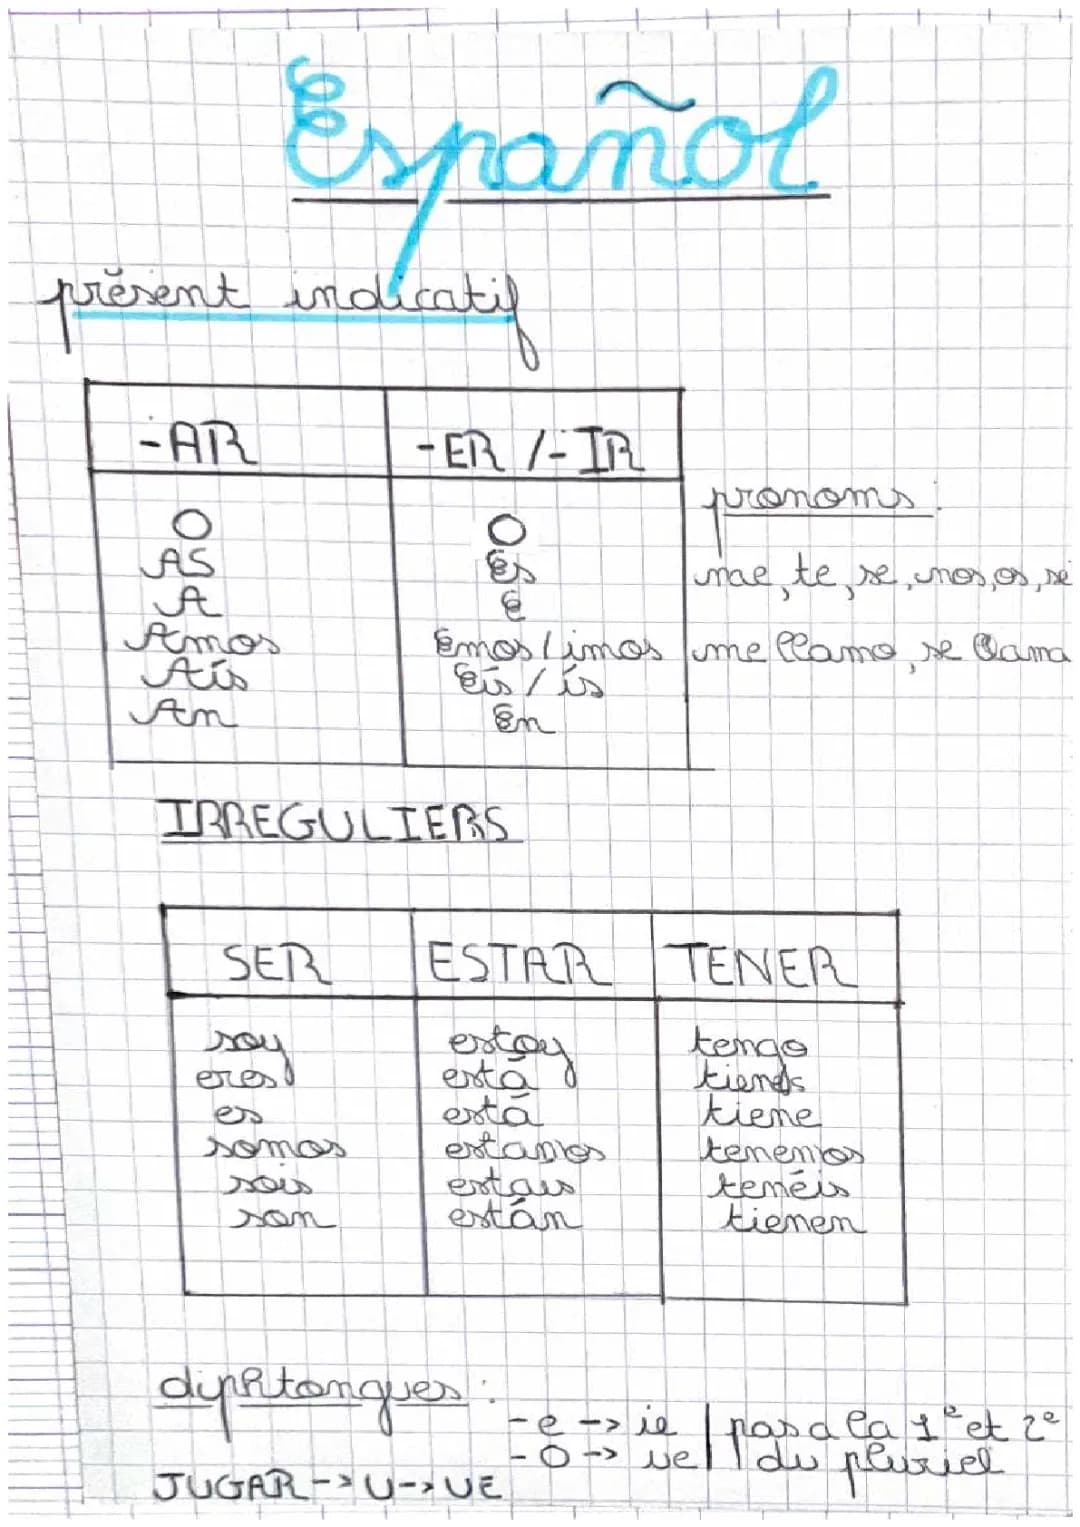 Español
présent indicatif
-AR
-ER /-IR
O
AS
A
Amos
Aís
An
O
Es
E
Emos/imos
Eís / ís
En
pronoms:
mae, te, se, nos, os, se
me llamo, se llama
IRREGULIERS
SER
ESTAR
TENER
soy
eres
es
somos
sois
son
estoy
está
está
estamos
estais
están
tengo
tienes
tiene
tenemos
tenéis
tienen
diphtongues:
-e -> ie | pas a la 1e et 2e
-O -> ue | du pluriel
JUGAR -> U -> UE